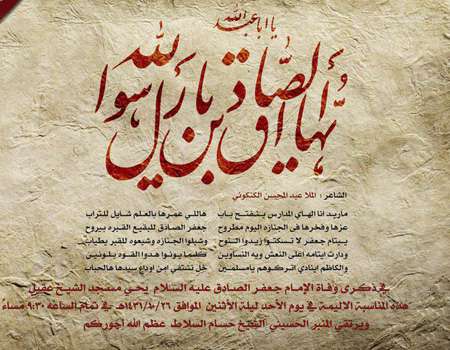 يا أبا عبد الله
أيها الصادق يابن رسول الله
الشاعر : الملا عبد المحسن الكنكوني
ماريد انا الهاي المدارس ينفتح باب
هاللي عمرها بالعلم شايل للتراب
عزها وفخرها في الجنازه اليوم مطروح
جعفر الصادق للبقيع القبره بيروح
ييتام جعفر لا تسكتوا زيدوا النوح
وشيلوا الجنازه وشيعوه للقبر
ودارت ايتامه اعلى النعش ويه النساوين
كلهم يونوا هدوا القوه يلونين
والكاظم ينادي اتركوهم يامسلمين
خل نشتفي من اوداع سيدها هالحباب
في ذكرى وفاة الإمام جعفر الصادق عليه السلام يحيى مسجد الشيخ عقيل
هذه المناسبة الأليمة في يوم الأحد ليلة الأثنين الموافق ١٤٣١/١٠/٢٦هـ في تمام الساعه ٩:٣٠ مساء
ويرتقي المنبر الحسيني الشيخ حسام السلاط عظم الله أجوركم